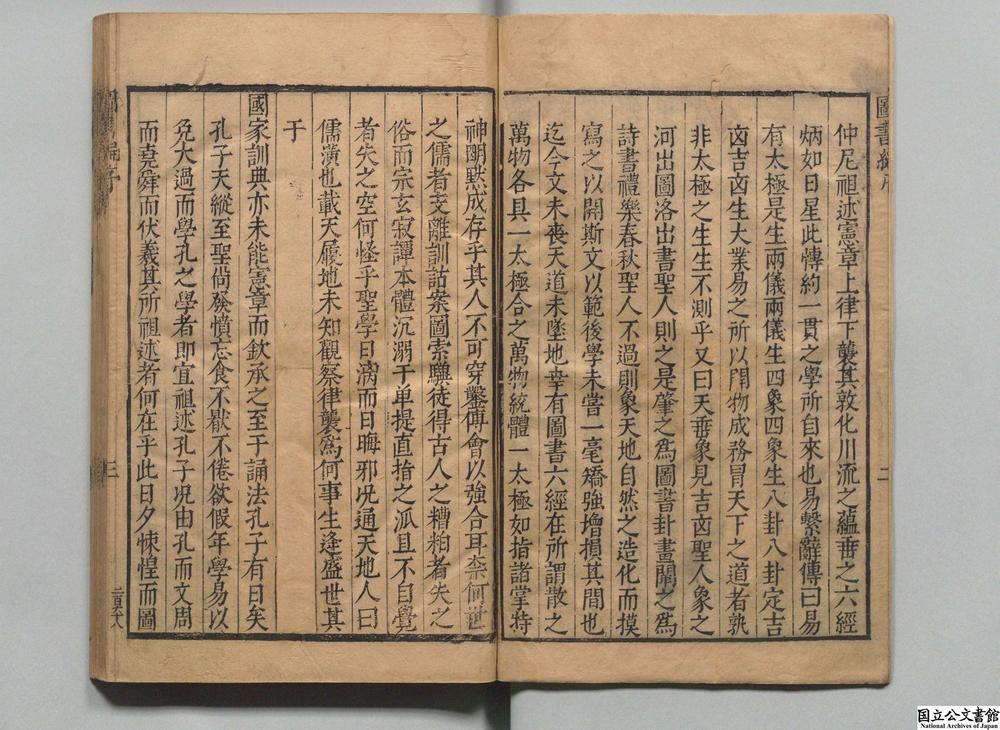 仲尼祖述憲章上律下襲其敦化川流之蘊垂之六經
炳如日星此博約一貫之學所自來也易繫辭傳曰易
有太極是生兩儀兩儀生四象四象生八卦八卦定吉
凶吉凶生大業易之所以開物成務冒天下之道者孰
非太極之生生不測乎又曰天垂象見吉凶聖人象之
河出圖洛出書聖人則之是肇之爲圖書卦畫闡之爲
詩書禮樂春秋聖人不過則象天地自然之造化而摸
寫之以開斯文以範後學未嘗一毫矯強增損其間也
迄今文未喪天道未墜地幸有圖書六經在所謂散之
萬物各具一太極合之萬物統體一太極如指諸掌特
神明默成存乎其人不可穿鑿傅會以強合耳柰何世
之儒者支離訓詁案圖索驥徒得古人之糟粕者失之
俗而宗玄寂譚本體沉溺于单提直指之派且不自覺
者失之空何怪乎聖學日漓而日晦邪况通天地人曰
儒潢也載天履地未知觀察律襲爲何事生逢盛世其
于
國家訓典亦未能憲章而欽承之至于誦法孔子有日矣
孔子天縱至聖尙發憤忘食不厭不倦欲假年學易以
免大過而學孔之學者即宜祖述孔子况由孔而文周
而堯舜而伏羲其所祖述者何在乎此日夕悚惶而圖
圖書編序
二
三
国立公文書館
National Archives of Japan